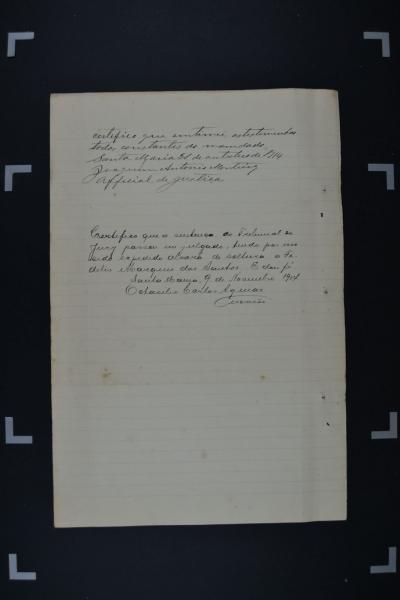 certifico que intimei as testemunhas
todas constantes do mandado.
Santa Maria de outubro de 1914
Joaquim Antonio
Official de justiça
Certifico que a sentença do Tribunal do
Jury passou em julgado, tendo por mim
sido expedido alvará de soltura a Fi-
delis Marques dos Santos. E dou fé
Santa Maria, 9 de Novembro 1914
Octacilio Carlos Aguiar
Escrivão